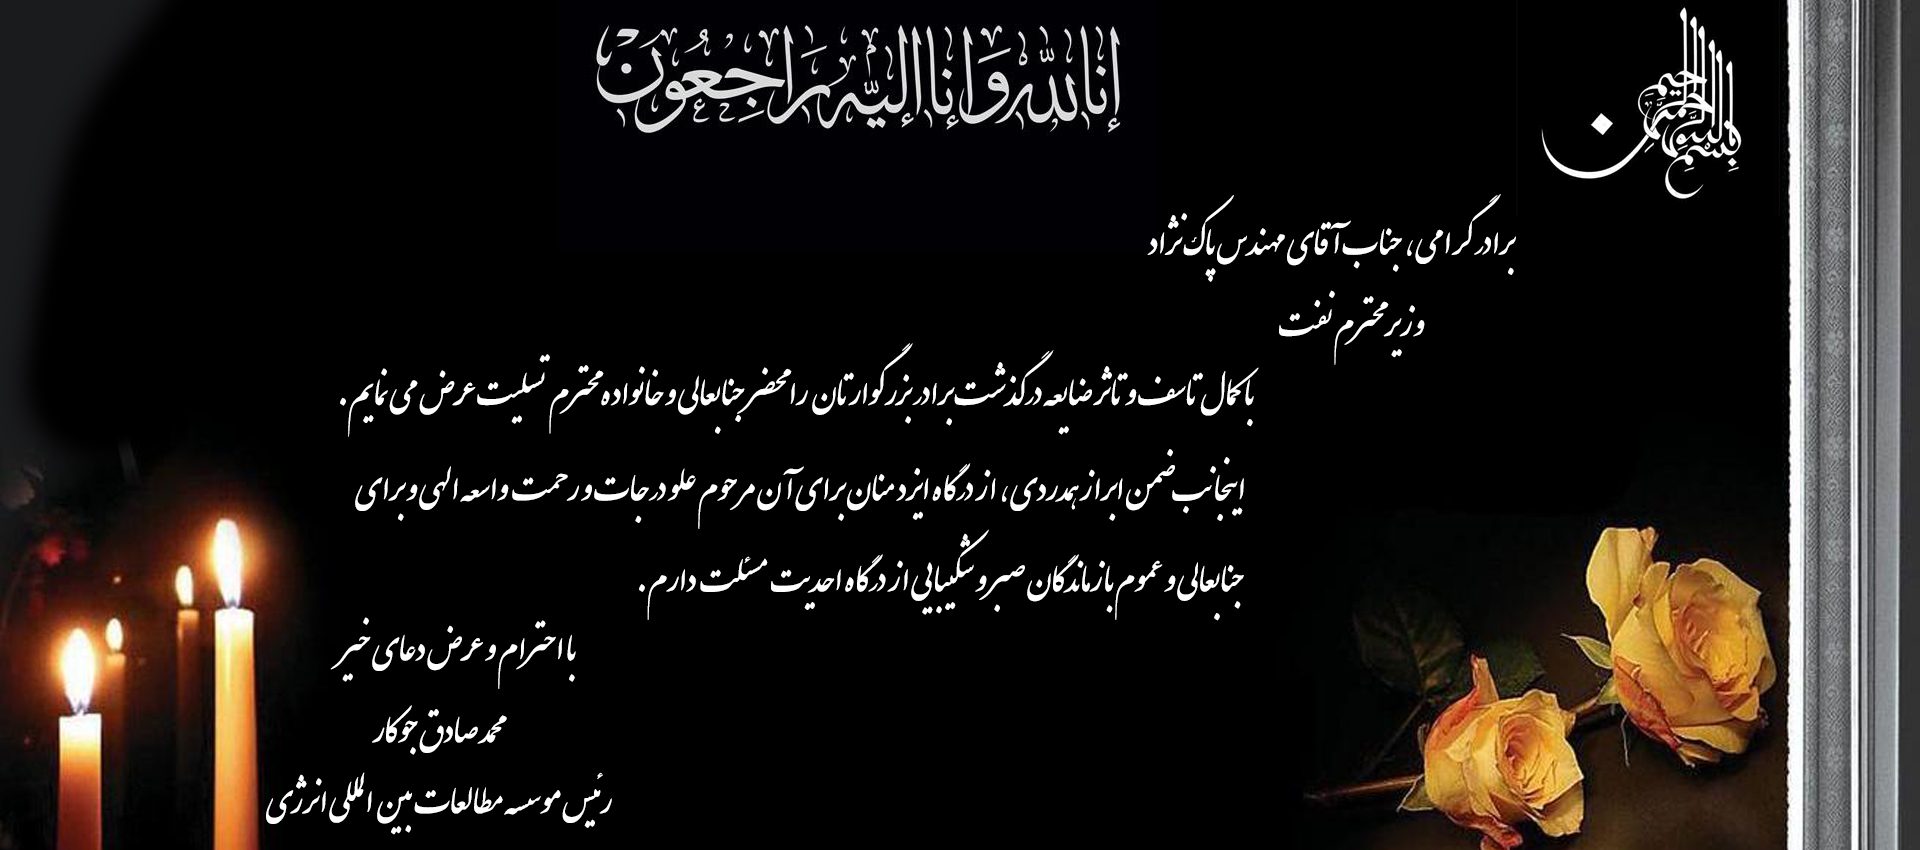 بسم الله الرحمن الرحیم
إنا لله وإنا إليه راجعون
برادر گرامی، جناب آقای مهندس پاک نژاد
وزیر محترم نفت
با کمال تاسف و تاثر ضایعه درگذشت برادر بزرگوارتان را محضر جنابعالی و خانواده محترم تسلیت عرض می نمایم.
اینجانب ضمن ابراز همدردی، از درگاه ایزد منان برای آن مرحوم علو درجات و رحمت واسعه الهی و برای
جنابعالی و عموم بازماندگان صبر و شکیبایی از درگاه احدیت مسئلت دارم.
با احترام و عرض دعای خیر
محمد صادق جوکار
رئیس موسسه مطالعات بین المللی انرژی